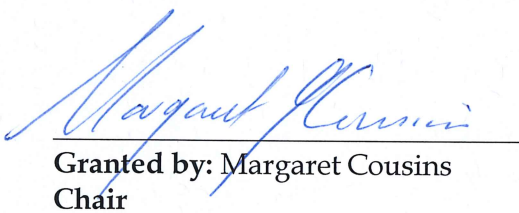 Margaret Cousins
Granted by: Margaret Cousins
Chair